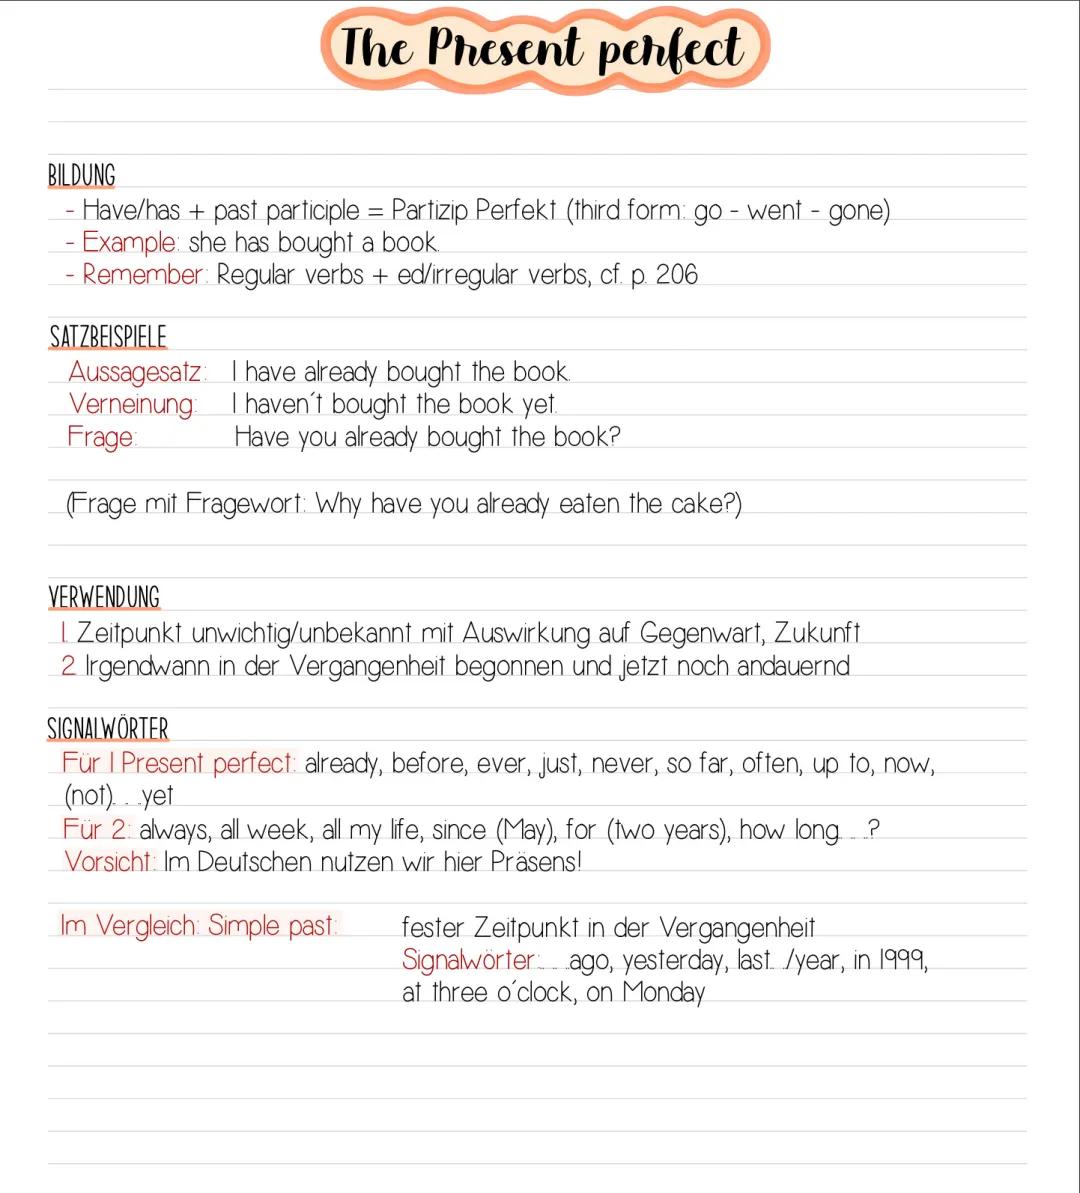 The Present perfect
BILDUNG
- Have/has + past participle = Partizip Perfekt (third form: go - went - gone)
- Example: she has bought a book.
- Remember: Regular verbs + ed/irregular verbs, cf. p. 206
SATZBEISPIELE
Aussagesatz: I have already bought the book.
Verneinung: I haven´t bought the book yet.
Frage: Have you already bought the book?
(Frage mit Fragewort: Why have you already eaten the cake?)
VERWENDUNG
1. Zeitpunkt unwichtig/unbekannt mit Auswirkung auf Gegenwart, Zukunft
2. Irgendwann in der Vergangenheit begonnen und jetzt noch andauernd
SIGNALWÖRTER
Für 1 Present perfect: already, before, ever, just, never, so far, often, up to, now,
(not)...yet
Für 2: always, all week, all my life, since (May), for (two years), how long...?
Vorsicht: Im Deutschen nutzen wir hier Präsens!
Im Vergleich: Simple past: fester Zeitpunkt in der Vergangenheit
Signalwörter:...ago, yesterday, last../year, in 1999,
at three o´clock, on Monday